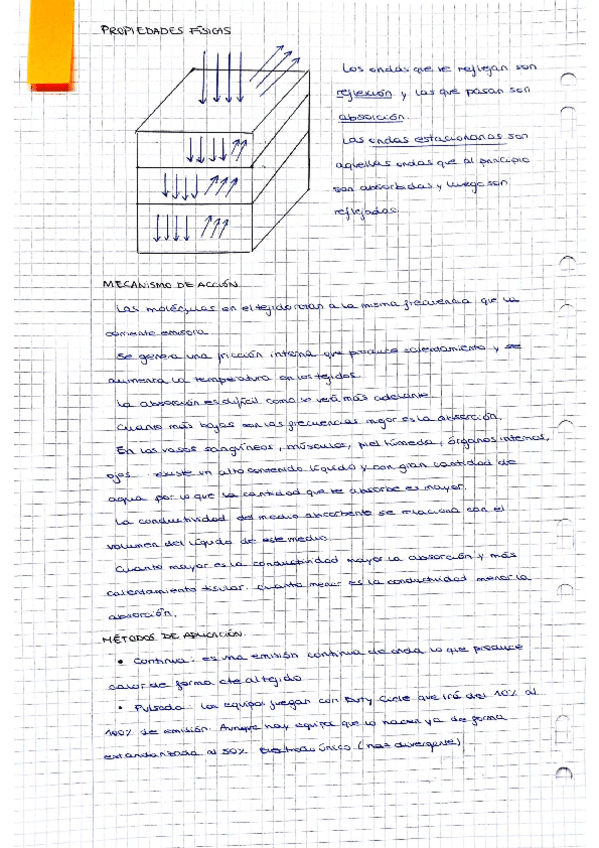 PROPIEDADES FÍSICAS
Las ondas que se reflejan son
reflexión y las que pasan son
absorción.
Las ondas estacionarias son
aquellas ondas que al principio
son absorbidas y luego son
reflejadas.
MECANISMO DE ACCIÓN
Las moléculas en el tejido a la misma frecuencia que la
corriente emisora.
Se genera una fricción interna que produce calentamiento y se
aumenta la temperatura en los tejidos.
La absorción es difícil como se verá más adelante.
Cuanto más bajas son las frecuencias mejor es la absorción.
En los vasos sanguíneos, músculos, piel húmeda, órganos internos,
ojos... existe un alto contenido líquido y con gran cantidad de
agua por lo que la cantidad que se absorbe es mayor.
La conductividad del medio absorbente se relaciona con el
volumen del líquido de este medio.
Cuanto mayor es la conductividad mayor la absorción y más
calentamiento tisular. Cuanto menor es la conductividad menor la
absorción.
MÉTODOS DE APLICACIÓN.
• Continua: es una emisión continua de onda lo que produce
calor de forma cte al tejido
• Pulsada: los equipos juegan con Duty Cicle que irá del 10% al
100% de emisión. Aunque hay equipos que lo hacen ya de forma
estandarizada al 50% Electrodo único (haz divergente)